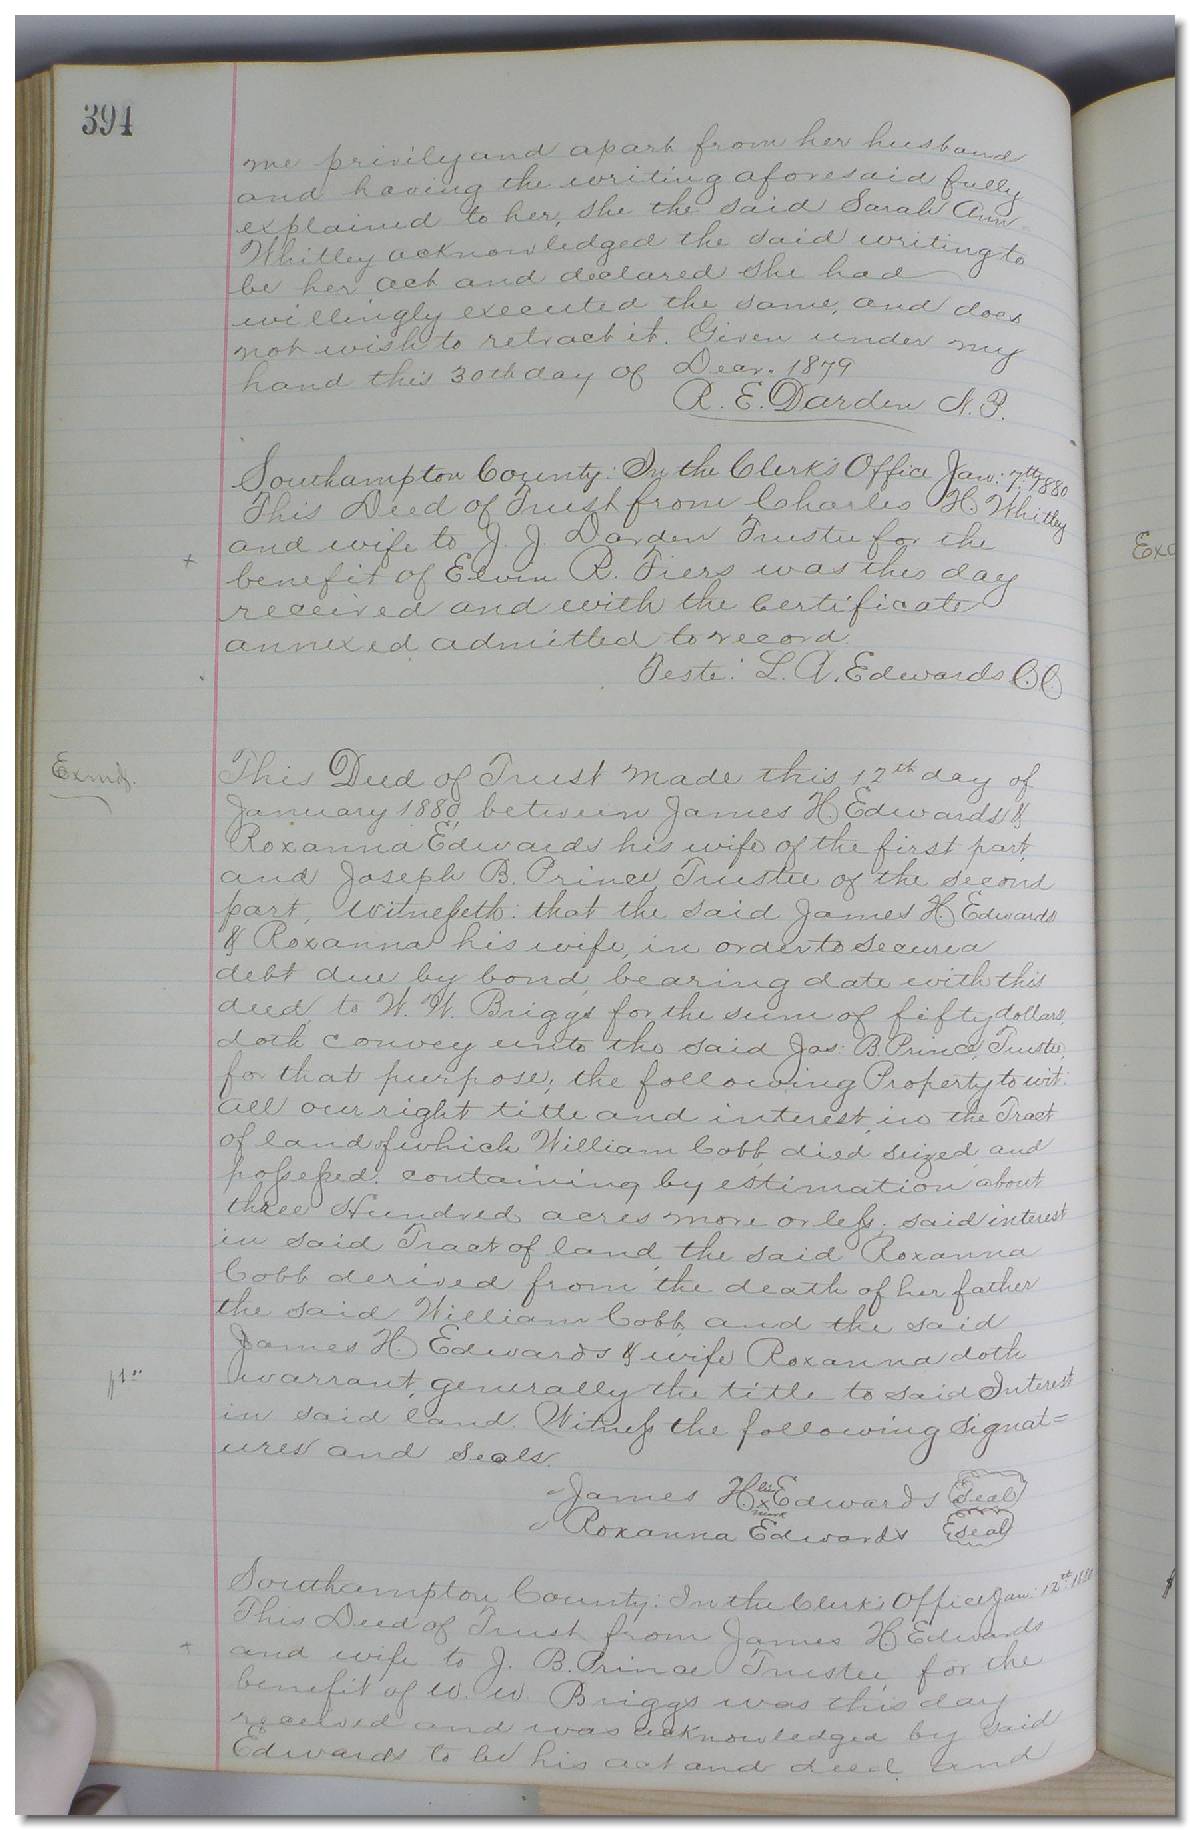 394
me privily and apart from her husband
and having the writing aforesaid fully
explained to her, she the said Sarah Ann
Whitley acknowledged the said writing to
be her act and declared she had
willingly executed the same, and does
not wish to retract it. Given under my
hand this 30th day of Decr. 1879
R. E. Darden N. P.
Southampton County: In the Clerk's Office Jan: 7th 1880
This Deed of Trust from Charles H Whitley
and wife to J. J Darden Trustee for the
benefit of Elvin R. Fiers was this day
received and with the Certificate
annexed admitted to record.
Teste: L. A. Edwards C.C.
Exmd.
This Deed of Trust made this 12th day of
January 1880, between James H Edwards &
Roxanna Edwards his wife of the first part,
and Joseph B. Prince, Trustee of the second
part, Witnesseth: that the said James H. Edwards
& Roxanna his wife, in order to secure a
debt due by bond, bearing date with this
deed, to W. W. Briggs for the sum of fifty dollars,
doth convey unto the said Jos: B. Prince, Trustee,
for that purpose; the following Property to wit:
all our right title and interest, in the Tract
of land of which William Cobb, died seized, and
possessed: containing by estimation about
three Hundred acres more or less; said interest
in said Tract of land, the said Roxanna
Cobb derived from the death of her father
the said William Cobb, and the said
James H. Edwards & wife Roxanna doth
warrant, generally the title to said Interest
in said land. Witness the following signat=
ures and seals.
James H his x mark Edwards (seal)
Roxanna Edwards (seal)
Southampton County: In the Clerk's Office Jan: 12th 1880
This Deed of Trust from James H Edwards
and wife to J. B. Prince Trustee, for the
benefit of W. W. Briggs was this day
received and was acknowledged by said
Edwards to be his act and deed, and